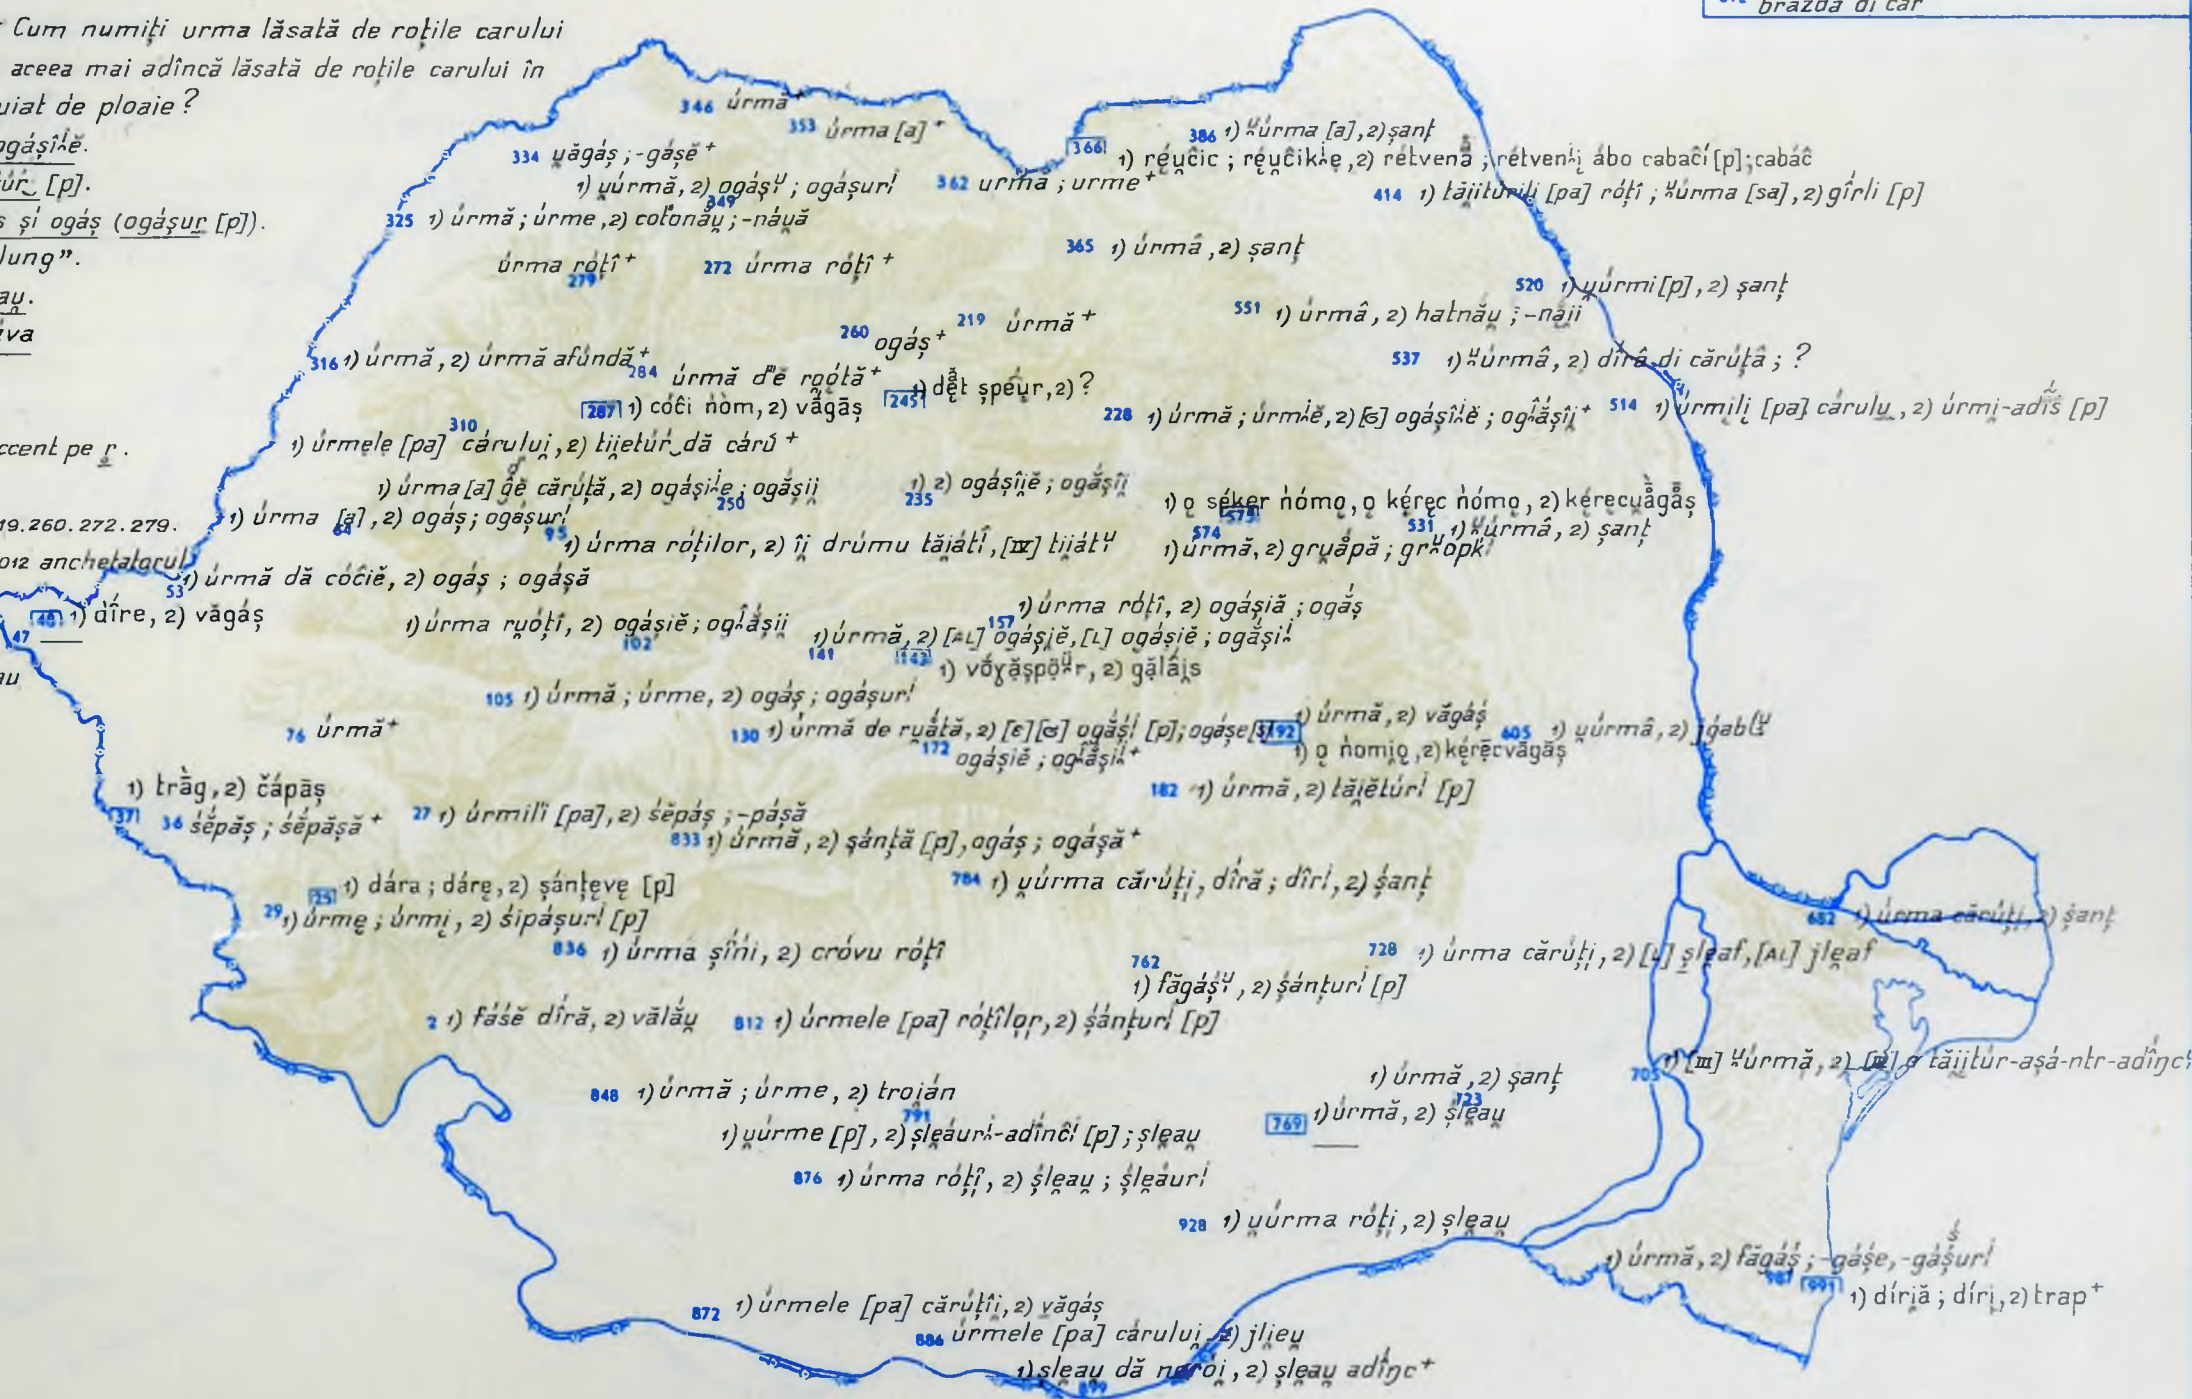 Cum numiți urma lăsată de roțile carului
aceea mai adîncă lăsată de roțile carului în
uiat de ploaie?
ogáșîi̯ĕ.
túr [p].
s și ogáș (ogáșur [p]).
lung”.
au̯.
va
ccent pe r.
19.260.272.279.
012 anchetatorul
au
brazda di car
346 úrmă+
353 úrma [a]+
334 u̯ăgáș ; -gáșĕ+
1) u̯úrmă, 2) ogáșⁱ ; ogáșurⁱ
349
362 urmă ; urme+
366
1) réu̯ĉic ; réu̯ĉikl̯e, 2) rétvenă ; rétveni̯ ábo cabaĉí [p] ; cabáĉ
386 1) ᵘúrma [a], 2) șanț
414 1) tăi̯itúrili̯ [pa] róțî ; ᵘúrma [sa], 2) gîrli [p]
325 1) úrmă ; úrme, 2) cotonău̯ ; -náu̯ă
úrma róțî+
279
272 úrma róțî+
365 1) úrmâ, 2) șanț
520 1) u̯úrmi [p], 2) șanț
551 1) úrmâ, 2) hatnău̯ ; -năii
260 ogáș+
219 úrmă+
316 1) úrmă, 2) úrmă afúndă+
284 úrmă d'ĕ ro̯ótă+
287 1) cóĉi nòm, 2) vắgāș
245 1) dĕt șpéu̯r, 2) ?
537 1) ᵘúrmâ, 2) dîrâ di cărúțâ ; ?
228 1) úrmă ; úrmi̯ĕ, 2) [ɞ] ogáșîi̯ĕ ; ogắșîi̯+
514 1) úrmili̯ [pa] cárulu̯, 2) úrmi̯-adîś [p]
310
1) úrmele [pa] cárului̯, 2) tii̯etúr dă cárú+
1) úrma [a] ĝĕ cărúță, 2) ogáșii̯e ; ogắșii
250
235 1) 2) ogáșîi̯ĕ ; ogắșîi
1) o̯ séker ńómo̯, o̯ kérec ńómo̯, 2) kérecu̯ágāș
575
531 1) ᵘúrmâ, 2) șanț
64 1) úrma [a], 2) ogáș ; ogașurⁱ
95 1) úrma róților, 2) îi̯ drúmu tăiátî, [IV] tii̯átⁱ
574
1) úrmă, 2) gru̯ápă ; grᵘópkⁱ
53 1) úrmă dă cóĉiĕ, 2) ogáș ; ogáșă
46 1) dîre, 2) văgáș
47
1) úrma ru̯óțî, 2) ogáșiĕ ; ogắșii
102
157 1) úrma róțî, 2) ogáșiă ; ogắș
141 1) úrmă, 2) [AL] ogáșiĕ, [L] ogáșiĕ ; ogắșiⁱ
143
1) vǒɣășpö̆r, 2) gắláis
105 1) úrmă ; úrme, 2) ogáș ; ogáșurⁱ
76 úrmă+
130 1) úrmă de ru̯átă, 2) [ɛ][ɞ] ogắșⁱ [p] ; ogáșe [s]
172 ogáșiĕ ; ogắșiⁱ+
192 1) úrmă, 2) văgáș
1) o̯ ńomio̯, 2) kérēcvāgāș
605 1) u̯úrmâ, 2) jgabⁱ
1) trăg, 2) čápāș
37
36 śĕpáș ; śĕpáșă+
27 1) úrmilⁱi [pa], 2) śĕpáș ; -páșă
182 1) úrmă, 2) tăi̯ĕtúrⁱ [p]
833 1) úrmă, 2) șánță [p], ogáș ; ogáșă+
25 1) dára ; dáre̯, 2) șánțeve̯ [p]
784 1) u̯úrma cărúți̯, dîră ; dîrⁱ, 2) șanț
29 1) úrme̯ ; úrmi̯, 2) śipáșurⁱ [p]
682 1) úrma cărúți̯, 2) șanț
836 1) úrma șini, 2) cróvu róțî
728 1) úrma cărúți̯, 2) [L] șle̯af, [AL] jle̯af
762
1) făgáșⁱ, 2) șánțurⁱ [p]
2 1) fáśĕ dîră, 2) vălắu̯
812 1) úrmele [pa] róțîlor, 2) șánțurⁱ [p]
705 1) [III] ᵘúrmă, 2) [III] o tăi̯itúr-așá-ntr-adîŋcⁱ
848 1) úrmă ; úrme, 2) troi̯án
1) úrmă, 2) șanț
723
791
1) u̯úrme [p], 2) șle̯áurⁱ-adînĉⁱ [p] ; șle̯au̯
769 1) úrmă, 2) șle̯au̯
876 1) úrma róți̯, 2) șle̯au̯ ; șle̯áurⁱ
928 1) u̯úrma róți̯, 2) șle̯au̯
1) úrmă, 2) făgáș ; -gáșe, -gáșurⁱ
987
991
1) díri̯ă ; díri̯, 2) trap+
872 1) úrmele [pa] cărúțîi̯, 2) văgáș
886 úrmele [pa] cárului̯, 2) jlieu̯
1) șle̯au̯ dă noroi̯, 2) șle̯au̯ adîŋc+
899